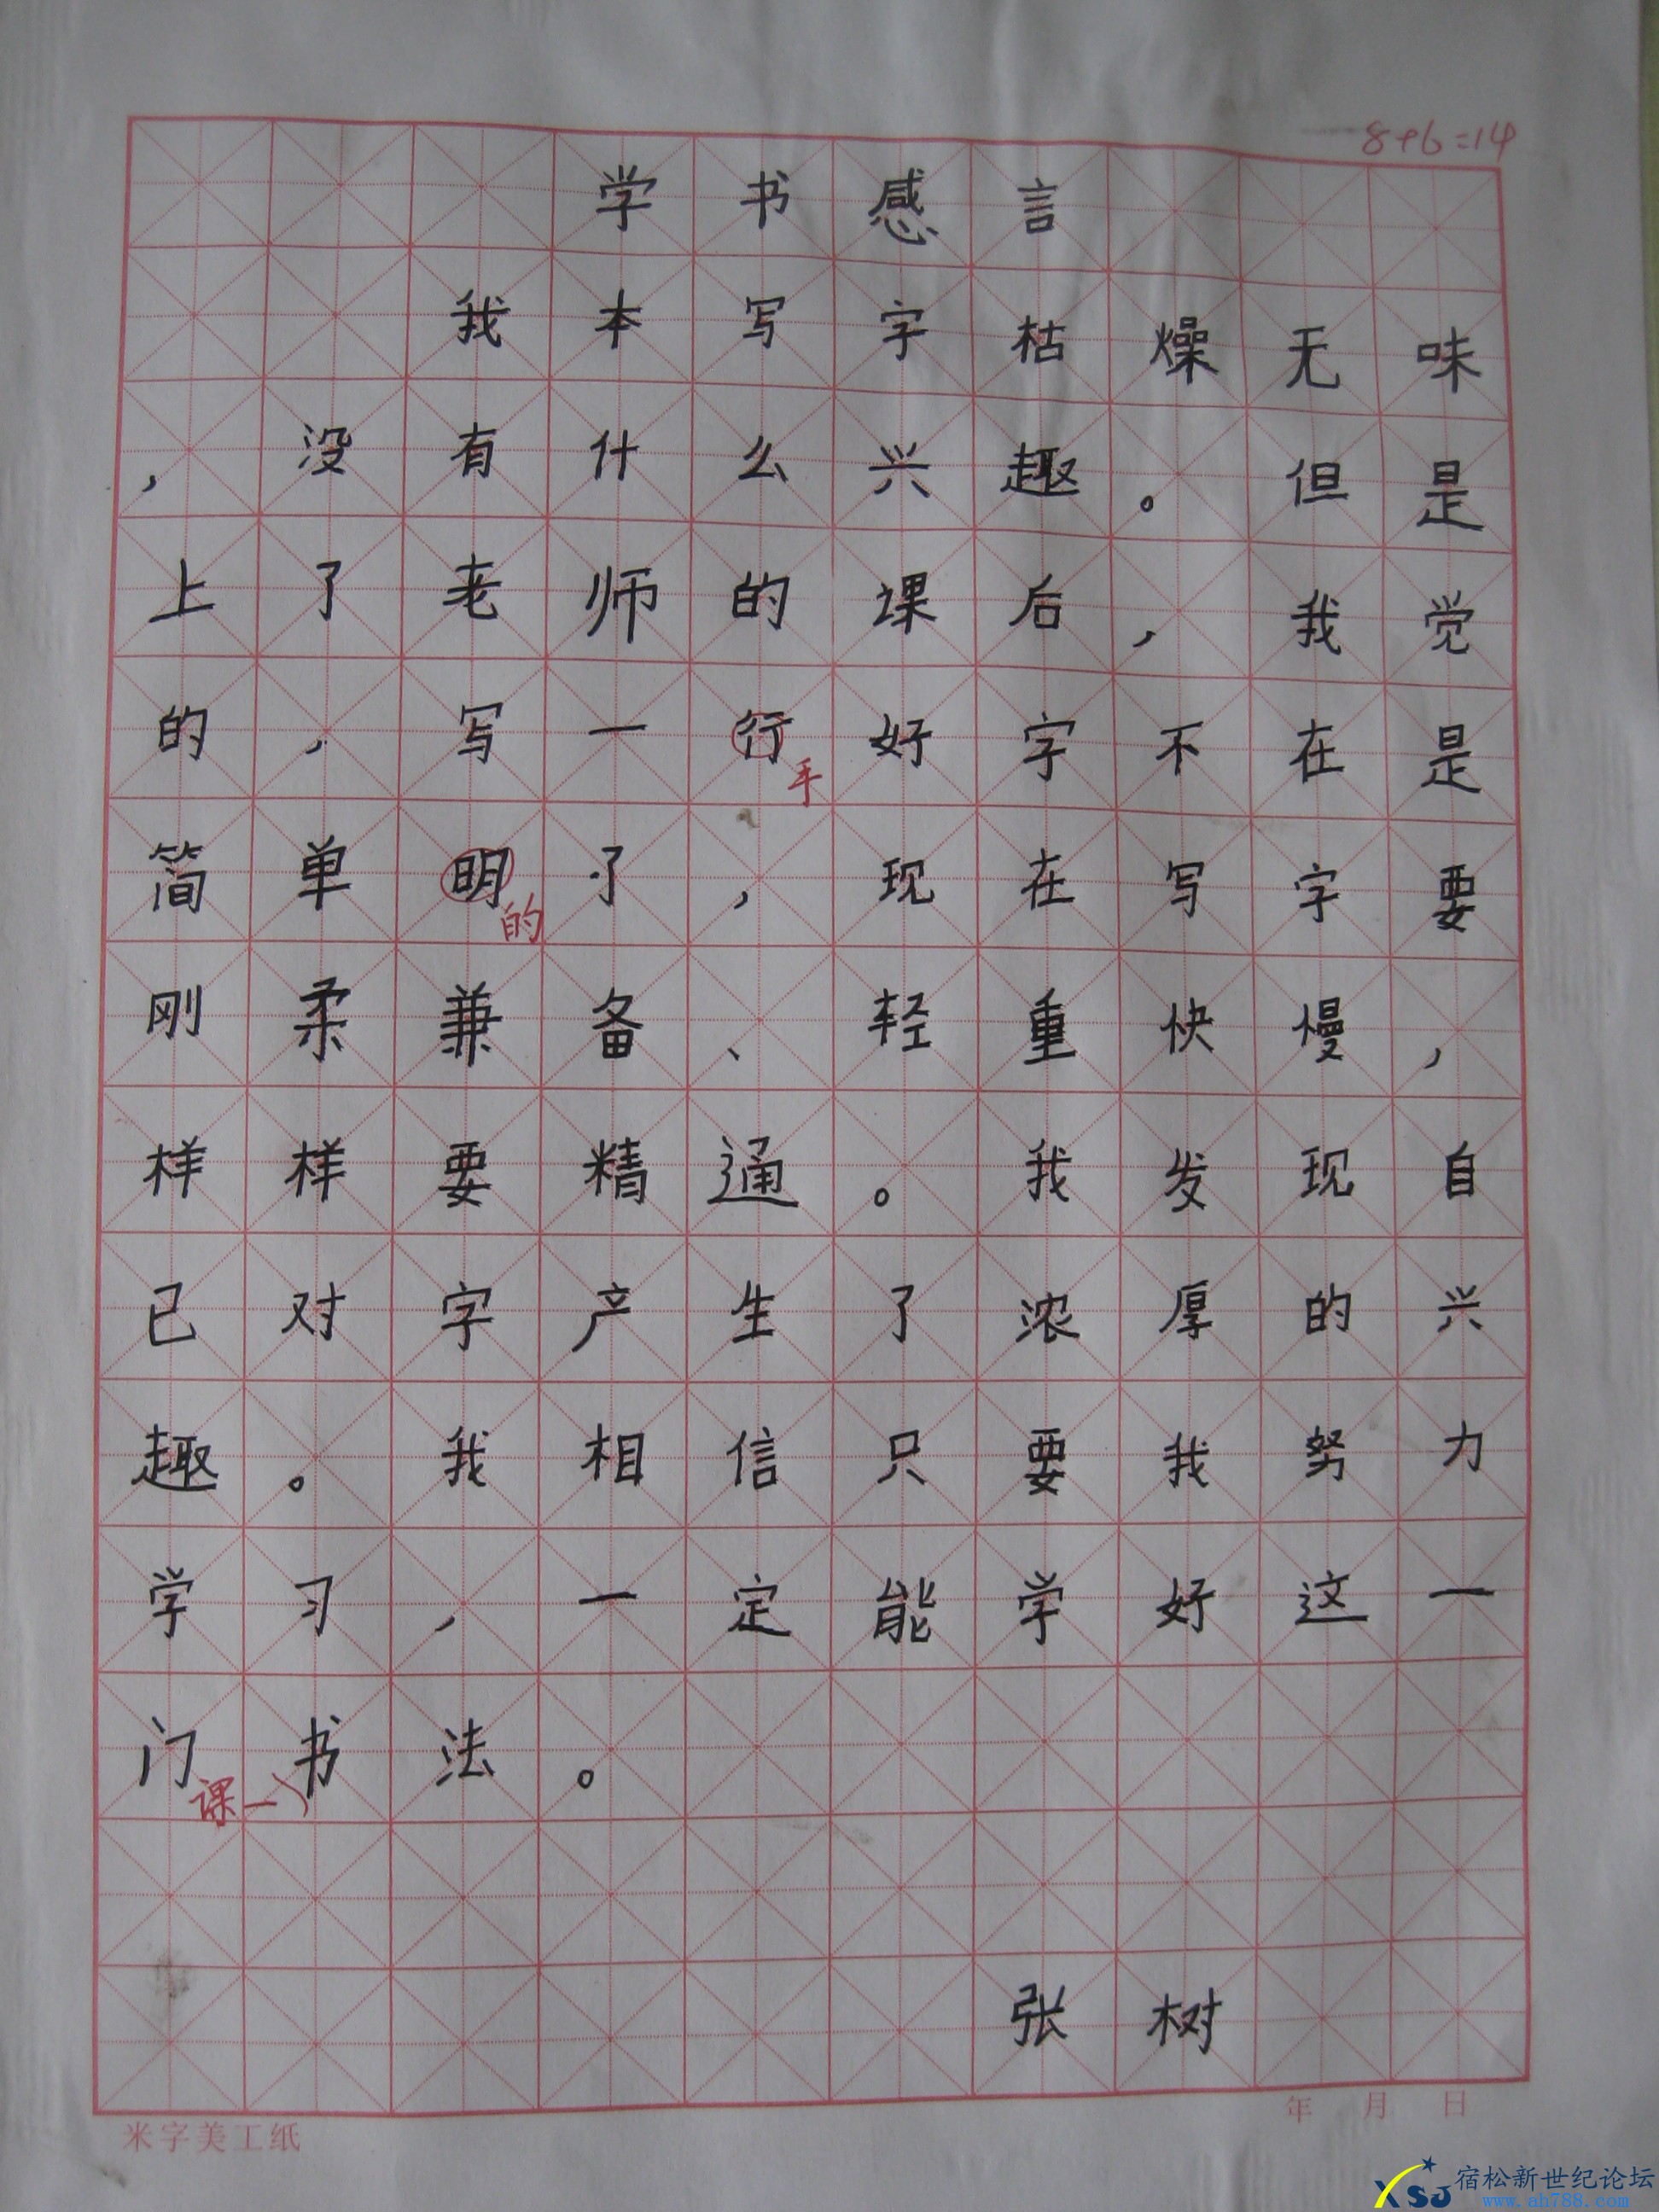 8+6=14
学书感言
我本写字枯燥无味
，没有什么兴趣。但是
上了老师的课后，我觉
的，写一行好字不在是
手
简单明了，现在写字要
的
刚柔兼备、轻重快慢，
样样要精通。我发现自
己对字产生了浓厚的兴
趣。我相信只要我努力
学习，一定能学好这一
门书法。
课一
张树
年 月 日
米字美工纸
XSJ 宿松新世纪论坛
www.ah788.com